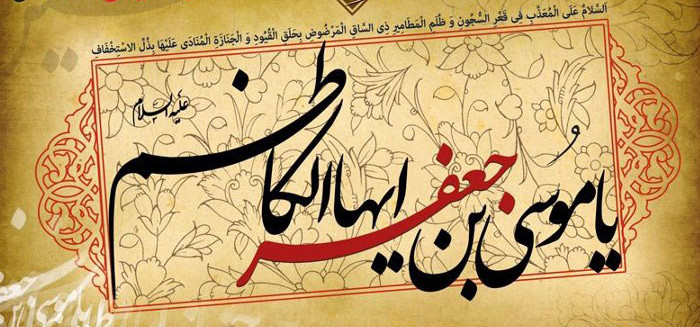 اَلسَّلامُ عَلَى الْمُعَذَّبِ فِي قَعْرِ السُّجُونِ وَ ظُلَمِ الْمَطَامِيرِ ذِي السَّاقِ الْمَرْضُوضِ بِحَلَقِ الْقُيُودِ وَ الْجَنَازَةِ الْمُنَادَى عَلَيْهَا بِذُلِّ الاسْتِخْفَافِ
يا مُوسَى بن جعفر ايها الكاظم
عليه السلام